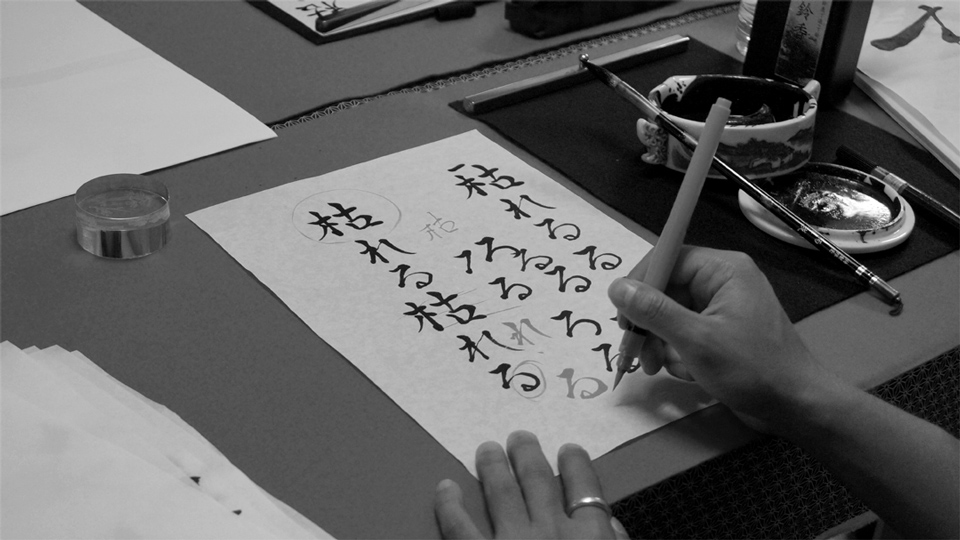 枯れるる
ろるる
枯
る
ろる
れ
る
枯れる枯れる